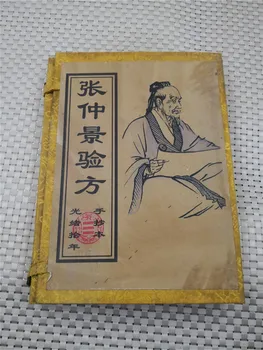 张仲景验方
手抄本
光绪拾年